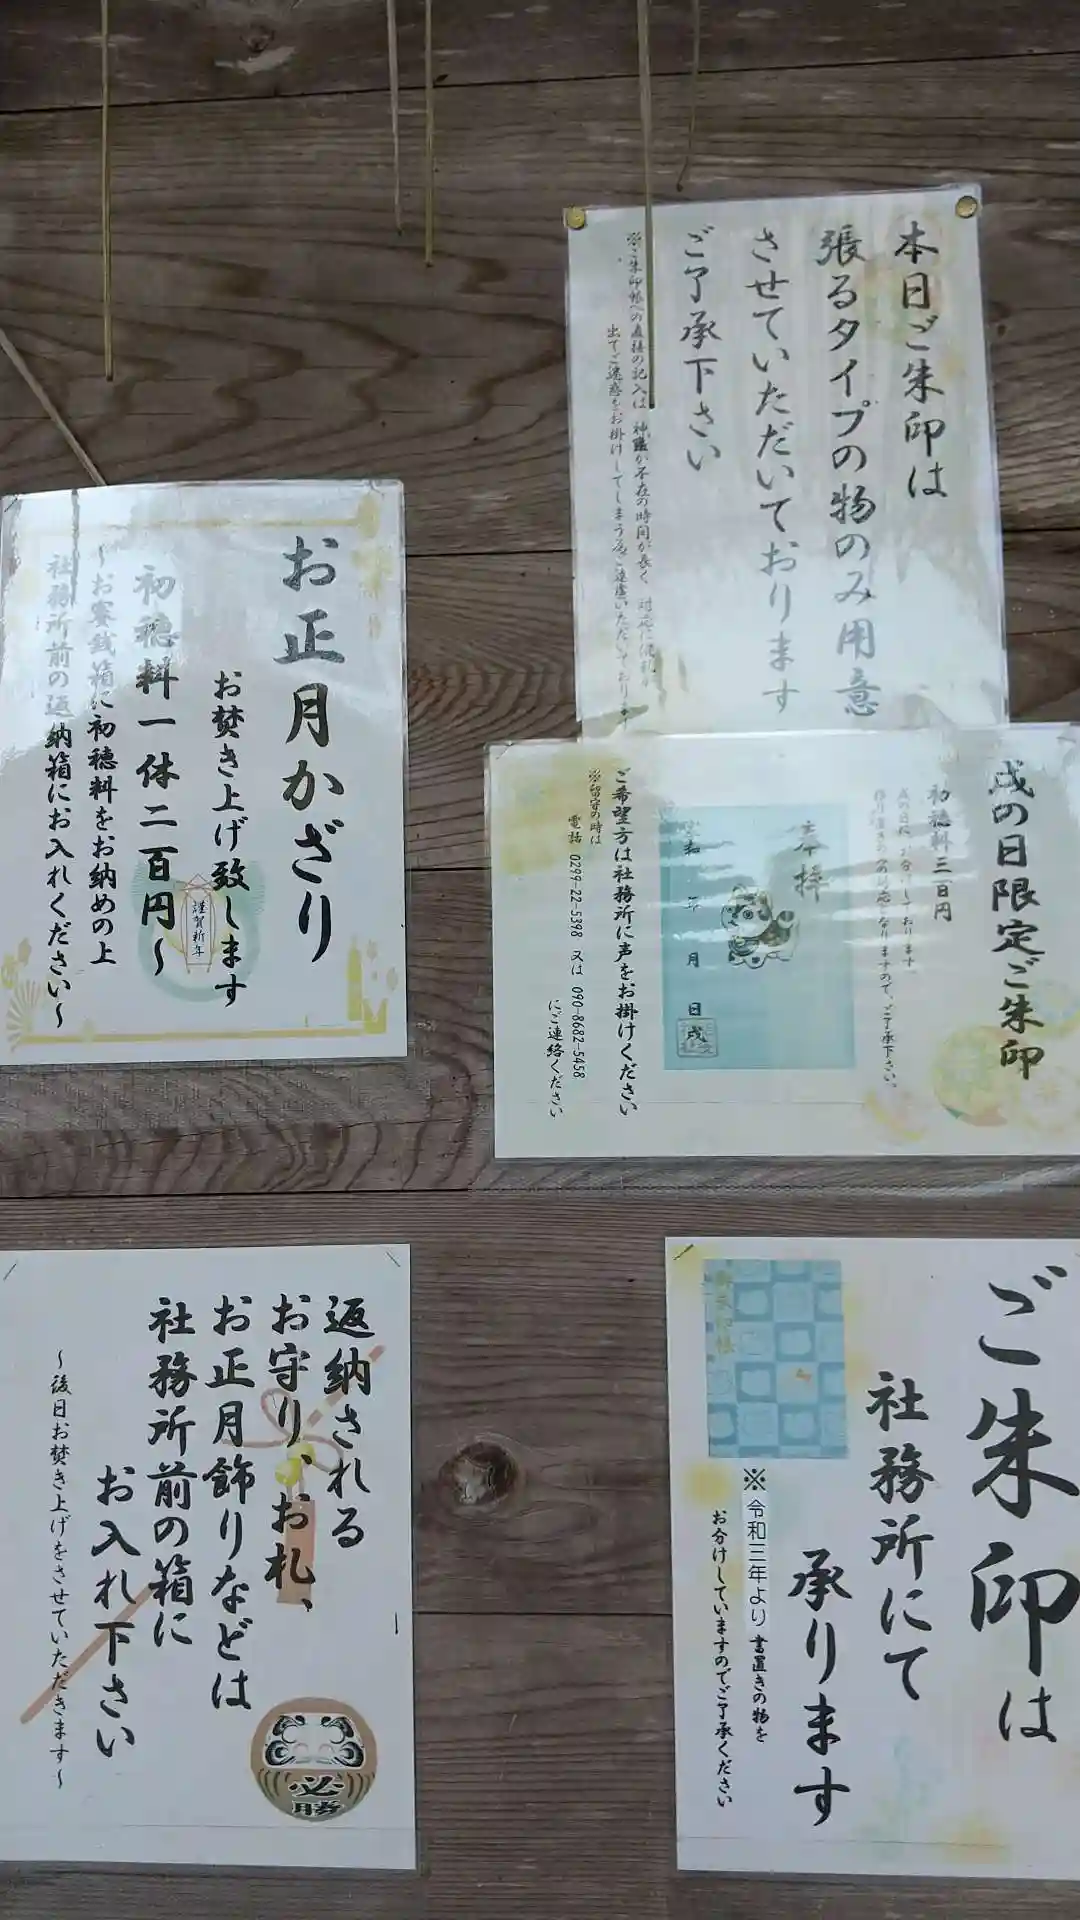 本日ご朱印は
張るタイプの物のみ用意
させていただいております
ご了承下さい
※ご朱印帳への直接の記入は 神職が不在の時間が長く
出てご迷惑をお掛けしてしまう為ご遠慮いただいております
お正月かざり
お焚き上げ致します
初穂料一体二百円～
～お賽銭箱に初穂料をお納めの上
社務所前の返納箱にお入れください～
謹賀新年
戌の日限定ご朱印
初穂料三百円
戌の日にお分けしております
書置きの 対応になりますので、ご了承下さい。
奉拝
令和 年 月 日戌
ご希望方は社務所に声をお掛けください
※留守の時は
電話 0299-22-5398 又は 090-8682-5458
にご連絡ください
返納される
お守り、お札、
お正月飾りなどは
社務所前の箱に
お入れ下さい
～後日お焚き上げをさせていただきます～
必勝
ご朱印は
社務所にて
承ります
※令和三年より 書置きの物を
お分けしていますのでご了承ください
御朱印帳